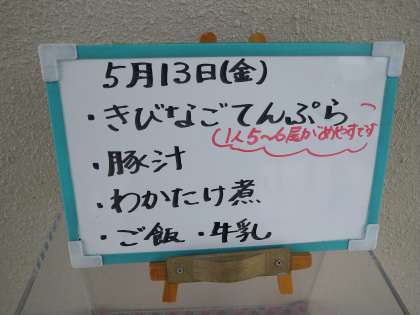 5月13日(金)
・きびなごてんぷら
(1人5～6尾がめやすです
・豚汁
・わかたけ煮
・ご飯・牛乳